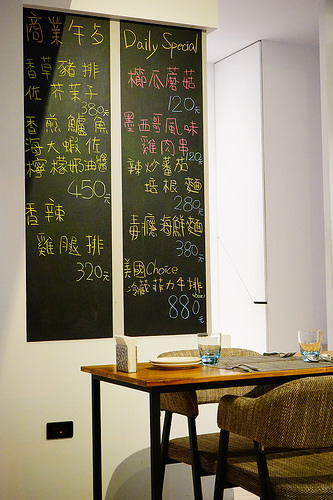 商業午餐
香草豬排
佐芥茉子
380元
香煎鱸魚
海大蝦佐
檸檬奶油醬
450元
香辣
雞腿排
320元
Daily Special
櫛瓜蘑菇
120元
墨西哥風味
雞肉串
120元
辣炒蕃茄
培根麵
280元
海鮮麵
380元
美國Choice
冷藏菲力牛排
880元